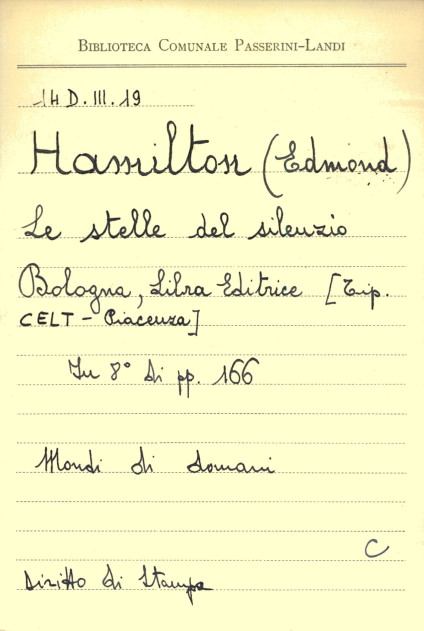 BIBLIOTECA COMUNALE PASSERINI-LANDI
14 D. III. 19
Hamilton (Edmond)
Le stelle del silenzio
Bologna, Libra Editrice [Tip.
CELT - Piacenza]
In 8° di pp. 166
Mondi di domani
C
Diritto di Stampa